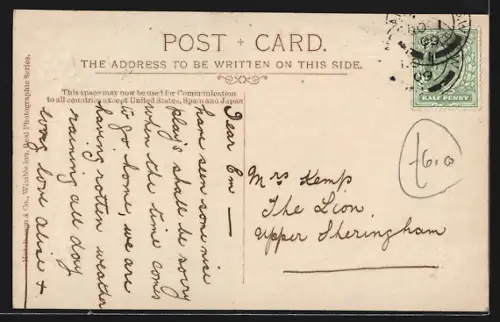 POST + CARD.
THE ADDRESS TO BE WRITTEN ON THIS SIDE.
This space may now be used for Communication
to all countries except United States, Spain and Japan
Dear Em —
have seen some nice
plays shall be sorry
when the time comes
to go home, we are
having rotten weather
raining all day
long love Alice +
Mrs Kemp
The Lion
Upper Sheringham
HALF PENNY
09
09
Wimbledon, Real Photographic Series.